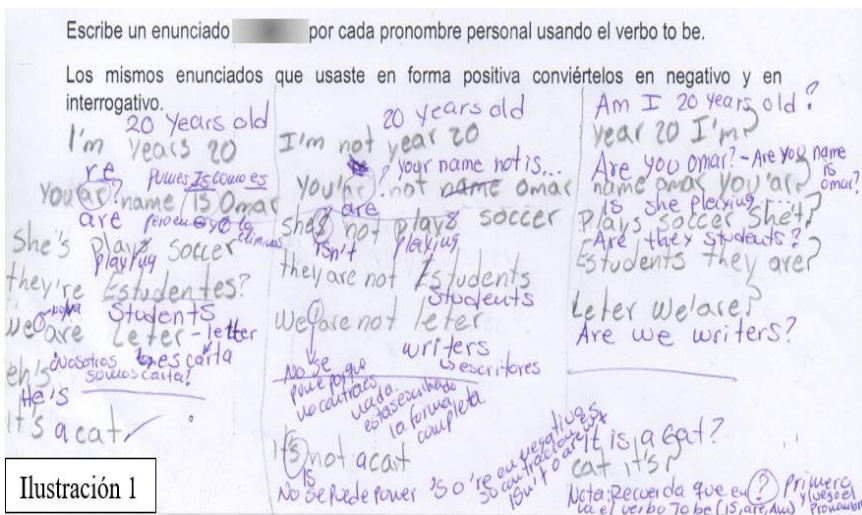 Escribe un enunciado por cada pronombre personal usando el verbo to be.
Los mismos enunciados que usaste en forma positiva conviértelos en negativo y en
interrogativo.
20 years old
I'm years 20
re
pones Is como es
You ar? name Is Omar
are pero en eliminas
She's plays soccer
playing
they're Estudentes?
Students
we're are Leter - letter
Nosotros somos carta? es carta
eh's
He's
It's a cat
20 years old
I'm not year 20
your name not is...
You'ar not name omar
are
she's not plays soccer
isn't playing
they are not Estudents
students
We are not leter
writers
escritores
No se pone porque no contraes nada. estas escribiendo la forma completa.
It's not a cat
is
No se puede poner 's o 're en negativos
so contraciones isn't o aren't
Am I 20 years old?
year 20 I'm?
Are you omar? - Are you name is omar?
name omar you'ar?
is she playing
plays soccer she's?
Are they students?
Estudents they are?
Leter We'are?
Are we writers?
It is a cat?
cat it's?
Nota: Recuerda que en ? Primero
va el verbo To be (Is, are, Am) y luego el
Pronombre
Ilustración 1